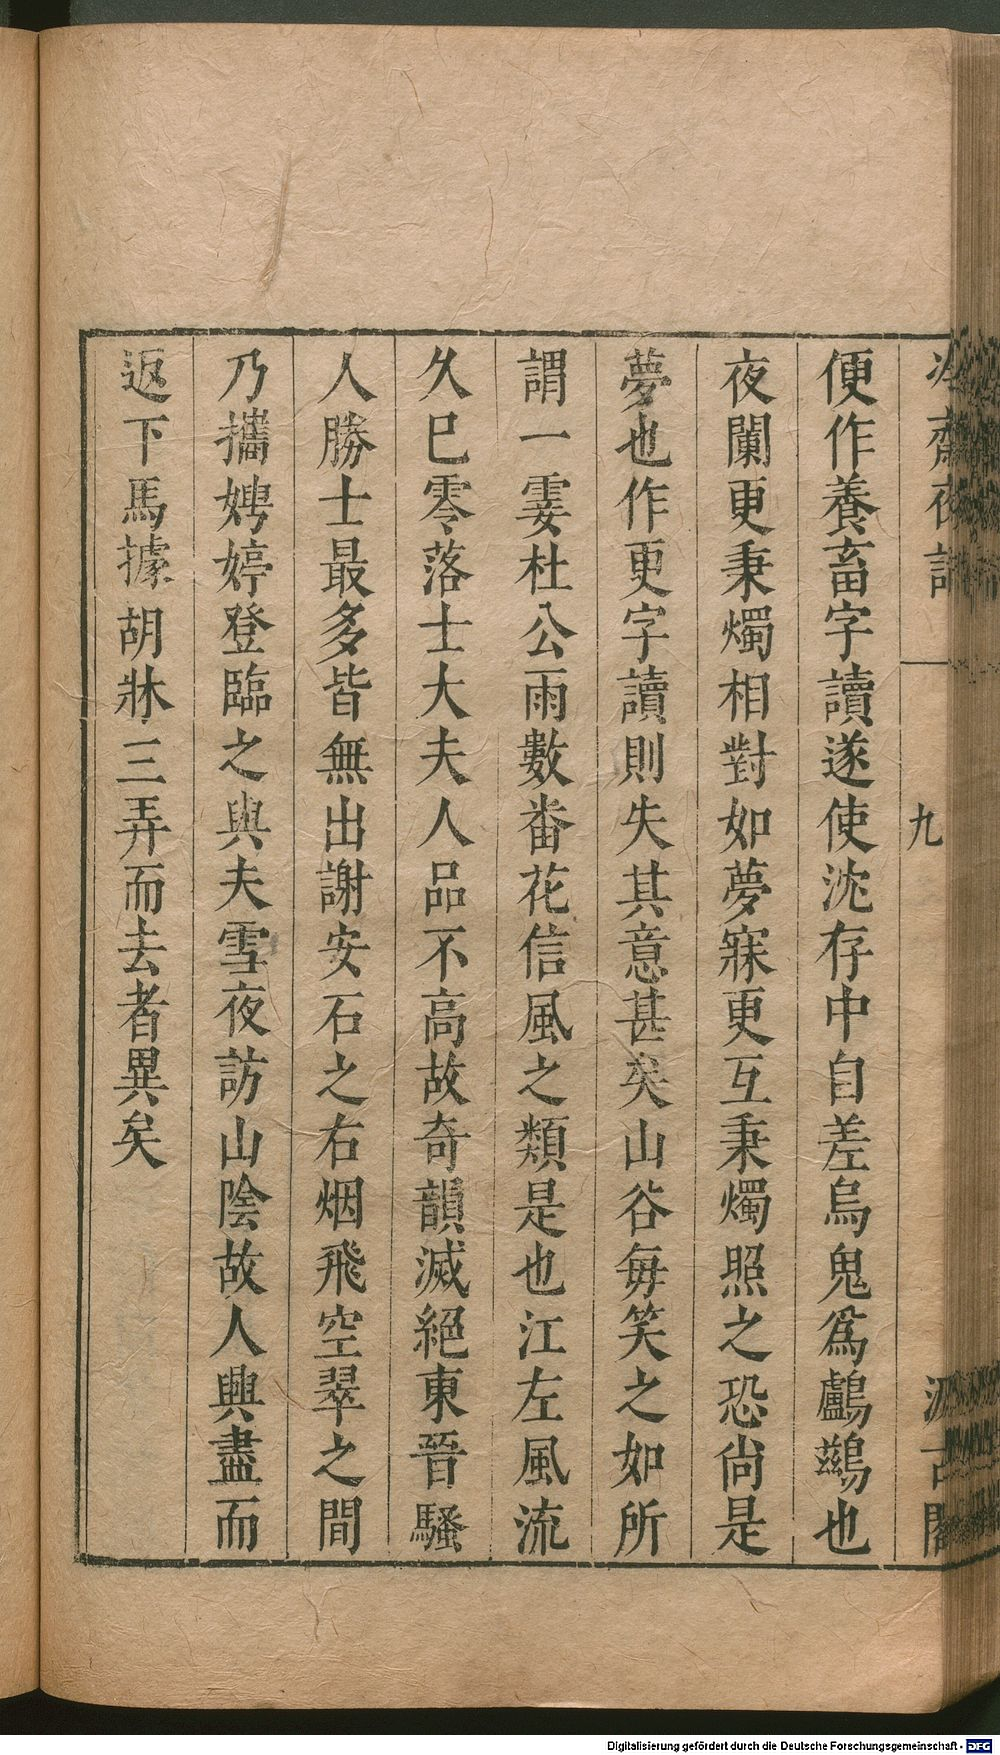 冷齋夜話 九 汲古閣
便作養畜字讀遂使沈存中自差烏鬼爲鸕鷀也
夜闌更秉燭相對如夢寐更互秉燭照之恐尙是
夢也作更字讀則失其意甚矣山谷每笑之如所
謂一霎杜公雨數番花信風之類是也江左風流
久已零落士大夫人品不高故奇韻滅絕東晉騷
人勝士最多皆無出謝安石之右烟飛空翠之間
乃攜娉婷登臨之與夫雪夜訪山陰故人興盡而
返下馬據胡牀三弄而去者異矣
Digitalisierung gefördert durch die Deutsche Forschungsgemeinschaft - DFG